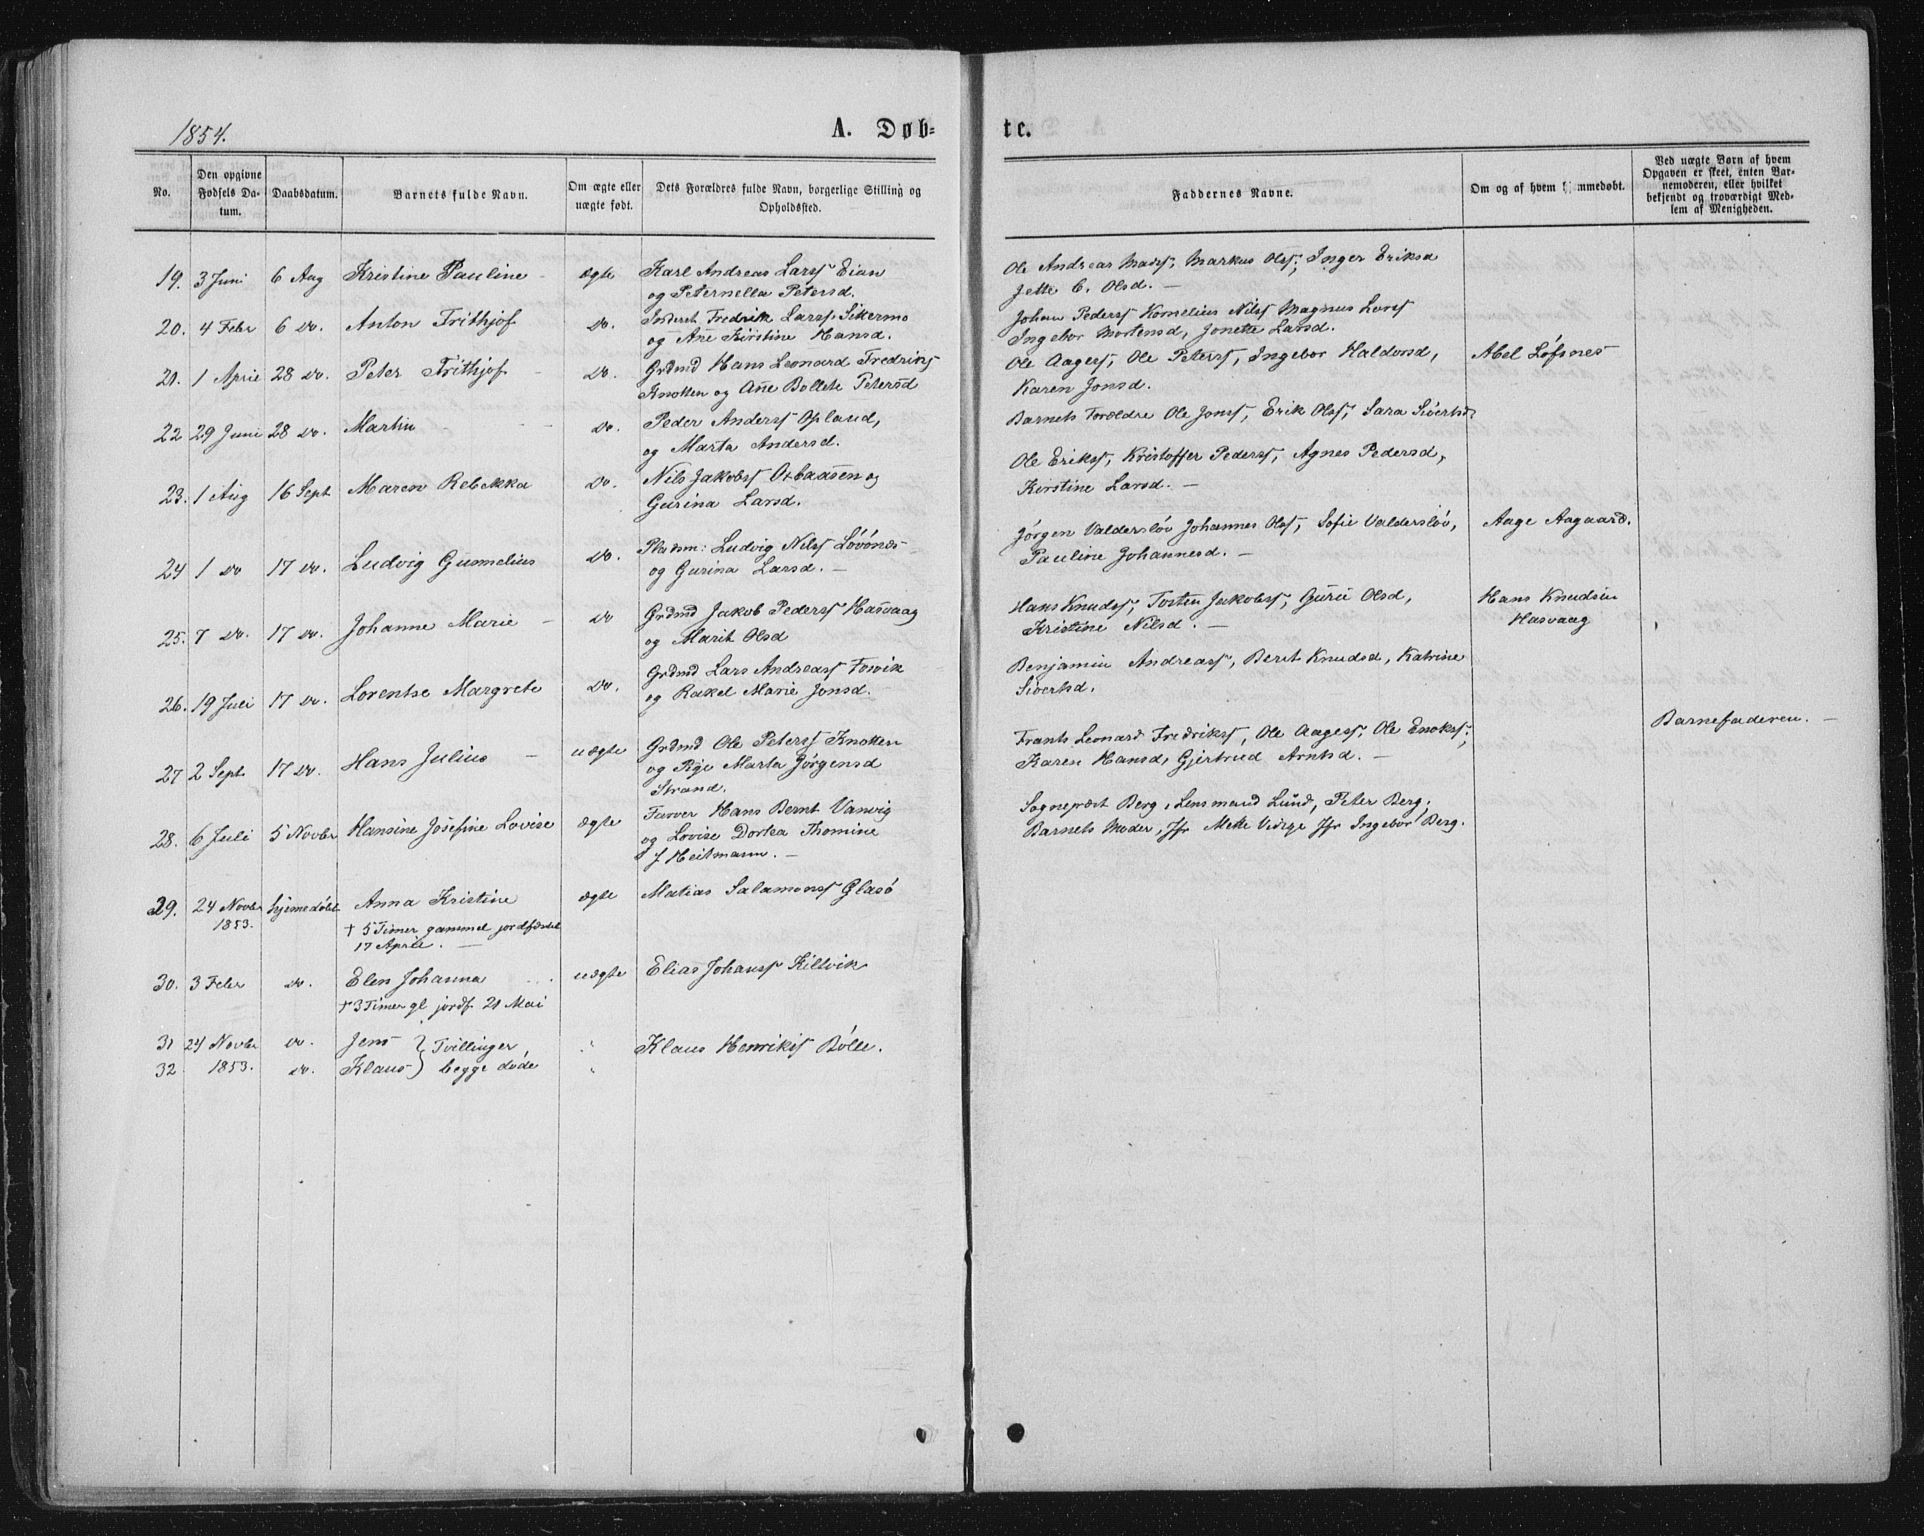 1854.
A. Døb-
te.
No.
Den opgivne Fødsels Datum.
Daabsdatum.
Barnets fulde Navn.
Om ægte eller uægte født.
Dets Forældres fulde Navn, borgerlige Stilling og Opholdssted.
Faddernes Navne.
Om og af hvem hjemmedøbt.
Ved uægte Børn af hvem Opgaven er skeet, enten Barnemoderen, eller hvilket bekjendt og troværdigt Medlem af Menigheden.
19. 3 Juni 6 Aug Kristine Pauline ægte Karl Andreas Larss Eian
og Peternella Petersd.
Ole Andreas Madss, Markus Olss, Inger Eriksd
Jette C. Olsd.
20. 4 Febr 6 do. Anton Frithjof do. Inderst Fredrik Larss Sikermo
og Ane Kirstine Hansd.
Johan Pederss Kornelius Nilss Magnus Larss
Ingebor Mortensd, Jonette Larsd.
21. 1 April 28 do. Peter Frithjof do. Grdmd Hans Leonard Fredriks
Knotten og Ane Bollete Petersd
Ole Aagess, Ole Peterss, Ingebor Haldorsd,
Karen Jonsd.
Abel Løfsnes
22 29 Juni 28 do. Martin do. Peder Anderss Opland,
og Marta Andersd.
Barnets Forældre Ole Jonss, Erik Olss, Sara Sivertsd
23. 1 Aug 16 Sept Maren Rebekka do. Nils Jakobss Oxbaasen og
Gurina Larsd.
Ole Erikss, Kristoffer Pederss, Agnes Pedersd,
Kirstine Larsd.
24 1 do 17 do. Ludvig Gunnelius do. Pladsm: Ludvig Nilss Løvønes
og Gurina Larsd.
Jørgen Valdersløv Johannes Olss, Sofie Valdersløv,
Pauline Johannesd.
Aage Aagaard.
25. 7 do. 17 do. Johanne Marie do Grdmd Jakob Pederss Hasvaag
og Marit Olsd
Hans Knudss, Torten Jakobss, Guru Olsd,
Kristine Nilsd.
Hans Knudsen
Hasvaag
26. 19 Juli 17 do. Lorentse Margrete do. Grdmd Lars Andreass Tosvik
og Rakel Marie Jonsd.
Benjamin Andreass, Berit Knudsd, Katrine
Sivertsd.
27 2 Sept 17 do. Hans Julius uægte Grdmd Ole Peterss Knotten
og Pige Marta Jørgensd
Strand.
Frants Leonard Fredrikss, Ole Aagess, Ole Enokss,
Karen Hansd, Gjertrud Arntsd.
Barnefaderen.
28. 6 Juli 5 Novbr Hansine Josefine Lovise ægte Farver Hans Bernt Vanvig
og Lovise Dortea Thomine
f Heitmann.
Sognepræst Berg, Lensmand Lund, Peter Berg,
Barnets Moder, Jfr Mette Jfr Ingebor Berg.
29. 24 Novbr
1853. hjemedøbt Anna Kristine ægte Matias Salamonss Glasø
† 5 Timer gammel jordfæstet
17 April.
30. 3 Febr do. Elen Johanna uægte Elias Johanss Kiltvik
† 3 Timer gl jordf. 21 Mai
31 24 Novbr do. Jens } Tvillinger Klaus Henrikss Bølle.
32 1853. do. Klaus } begge døde